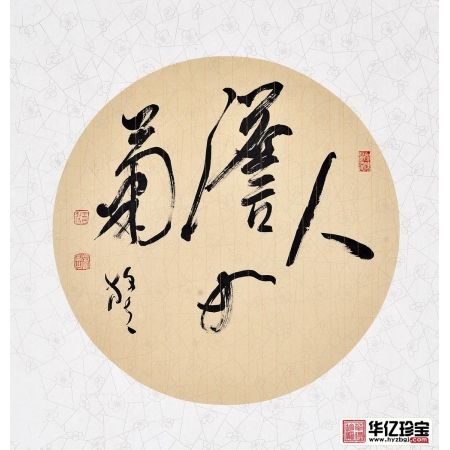 人
澹如
菊
华亿珍宝
www.hyzbgj.com